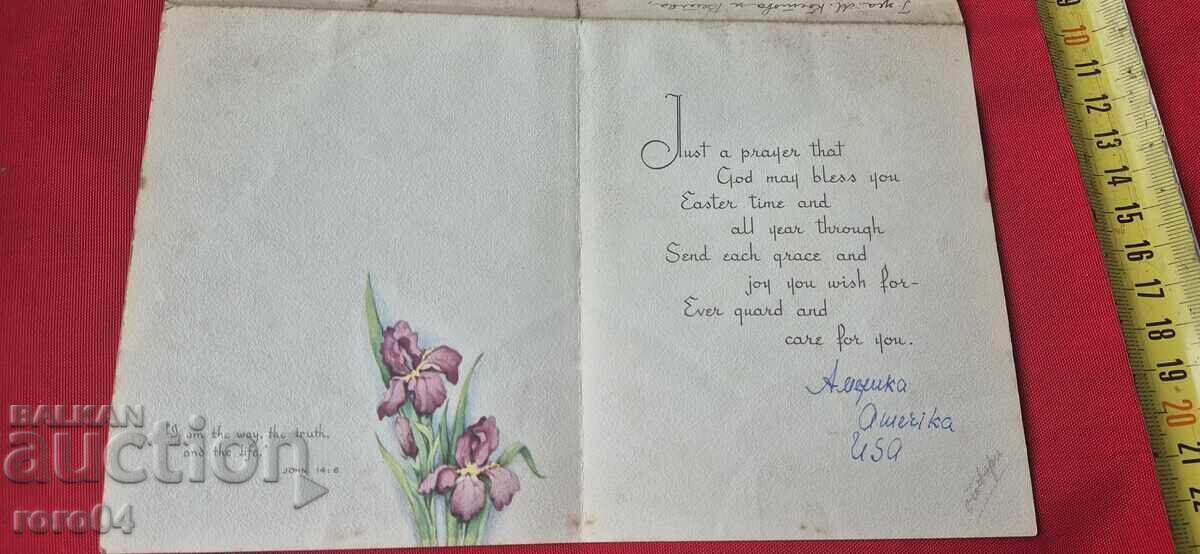 Just a prayer that
God may bless you
Easter time and
all year through
Send each grace and
joy you wish for-
Ever guard and
care for you.
Америка
America
USA
"I am the way, the truth,
and the life."
JOHN 14:6
BALKAN
auction
roro04
9
10
11
12
13
14
15
16
17
18
19
20
21
22